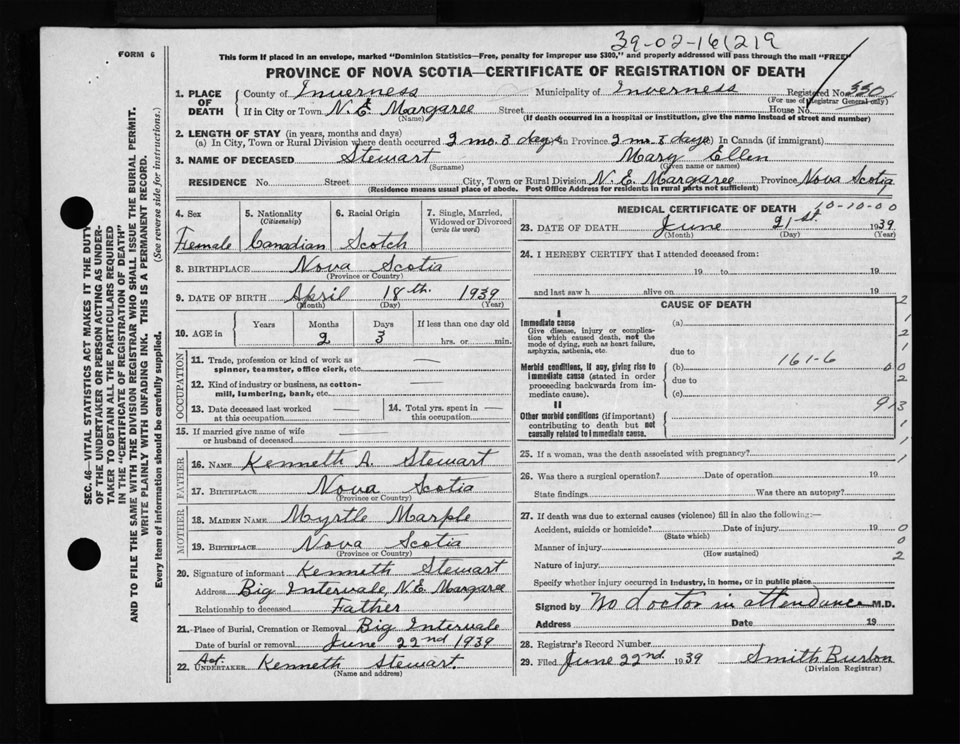 39-02-161219
FORM 6
This form if placed in an envelope, marked "Dominion Statistics—Free, penalty for improper use $300," and properly addressed will pass through the mail "FREE"
PROVINCE OF NOVA SCOTIA—CERTIFICATE OF REGISTRATION OF DEATH
1. PLACE OF DEATH
County of Inverness Municipality of Inverness Registered No. 330
(For use of Registrar General only)
If in City or Town N. E. Margaree Street House No.
(Name) (If death occurred in a hospital or institution, give the name instead of street and number)
2. LENGTH OF STAY (in years, months and days)
(a) In City, Town or Rural Division where death occurred 2 mo. 3 days in Province 2 mo. 3 days In Canada (if immigrant)
3. NAME OF DECEASED Stewart Mary Ellen
(Surname) (Given name or names)
RESIDENCE No. Street City, Town or Rural Division N. E. Margaree Province Nova Scotia
(Residence means usual place of abode. Post Office Address for residents in rural parts not sufficient)
4. Sex 5. Nationality (Citizenship) 6. Racial Origin 7. Single, Married, Widowed or Divorced (write the word)
Female Canadian Scotch
8. BIRTHPLACE Nova Scotia
(Province or Country)
9. DATE OF BIRTH April 18th. 1939
(Month) (Day) (Year)
10. AGE in Years Months Days If less than one day old
2 3 hrs. or min.
OCCUPATION
11. Trade, profession or kind of work as spinner, teamster, office clerk, etc. —
12. Kind of industry or business, as cotton-mill, lumbering, bank, etc. —
13. Date deceased last worked at this occupation — 14. Total yrs. spent in this occupation —
15. If married give name of wife or husband of deceased —
FATHER
16. NAME Kenneth A. Stewart
17. BIRTHPLACE Nova Scotia
(Province or Country)
MOTHER
18. MAIDEN NAME Myrtle Marple
19. BIRTHPLACE Nova Scotia
(Province or Country)
20. Signature of informant Kenneth Stewart
Address Big Intervale, N.E. Margaree
Relationship to deceased Father
21. Place of Burial, Cremation or Removal Big Intervale
Date of burial or removal June 22nd 1939
22. Act. UNDERTAKER Kenneth Stewart.
(Name and address)
MEDICAL CERTIFICATE OF DEATH 10-10-00
23. DATE OF DEATH June 21st. 1939
(Month) (Day) (Year)
24. I HEREBY CERTIFY that I attended deceased from:
19 to 19
and last saw h alive on 19
CAUSE OF DEATH
I
Immediate cause (a)
Give disease, injury or complication which caused death, not the mode of dying, such as heart failure, asphyxia, asthenia, etc.
due to
Morbid conditions, if any, giving rise to immediate cause (stated in order proceeding backwards from immediate cause).
(b) 161-6
due to
(c)
II
Other morbid conditions (if important) contributing to death but not causally related to immediate cause.
25. If a woman, was the death associated with pregnancy?
26. Was there a surgical operation? Date of operation 19
State findings Was there an autopsy?
27. If death was due to external causes (violence) fill in also the following:—
Accident, suicide or homicide? Date of injury 19
(State which)
Manner of injury
(How sustained)
Nature of injury
Specify whether injury occurred in industry, in home, or in public place
Signed by No doctor in attendance M.D.
Address Date 19
28. Registrar's Record Number
29. Filed June 22nd. 1939 Smith Burton
(Division Registrar)
SEC. 46—VITAL STATISTICS ACT MAKES IT THE DUTY
OF THE UNDERTAKER OR PERSON ACTING AS UNDER-
TAKER TO OBTAIN ALL THE PARTICULARS REQUIRED
IN THE "CERTIFICATE OF REGISTRATION OF DEATH"
AND TO FILE THE SAME WITH THE DIVISION REGISTRAR WHO SHALL ISSUE THE BURIAL PERMIT.
WRITE PLAINLY WITH UNFADING INK. THIS IS A PERMANENT RECORD.
Every item of information should be carefully supplied. (See reverse side for instructions.)